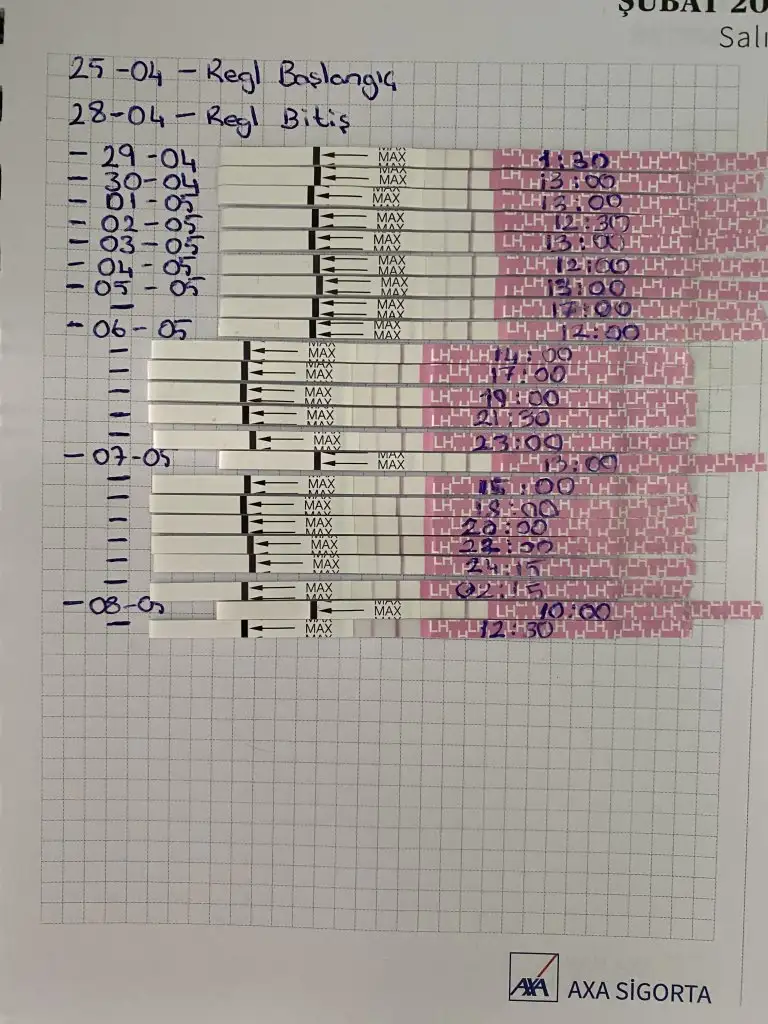 ŞUBAT 20
Salı
25-04 - Regl Başlangıç
28-04 - Regl Bitiş
- 29-04 MAX 1:30
- 30-04 MAX 13:00
- 01-05 MAX 13:00
- 02-05 MAX 12:30
- 03-05 MAX 13:00
- 04-05 MAX 12:00
- 05-05 MAX 13:00
- MAX 17:00
- 06-05 MAX 12:00
- MAX LH 14:00
- MAX LH 17:00
- MAX LH 19:00
- MAX LH 21:30
- MAX LH 23:00
- 07-05 MAX 13:00 LH
- MAX LH 15:00
- MAX LH 18:00
- MAX LH 20:00
- MAX LH 22:00
- MAX LH 24:15
- MAX LH 02:15
- 08-05 MAX LH 10:00
- MAX LH 12:30
AXA AXA SİGORTA